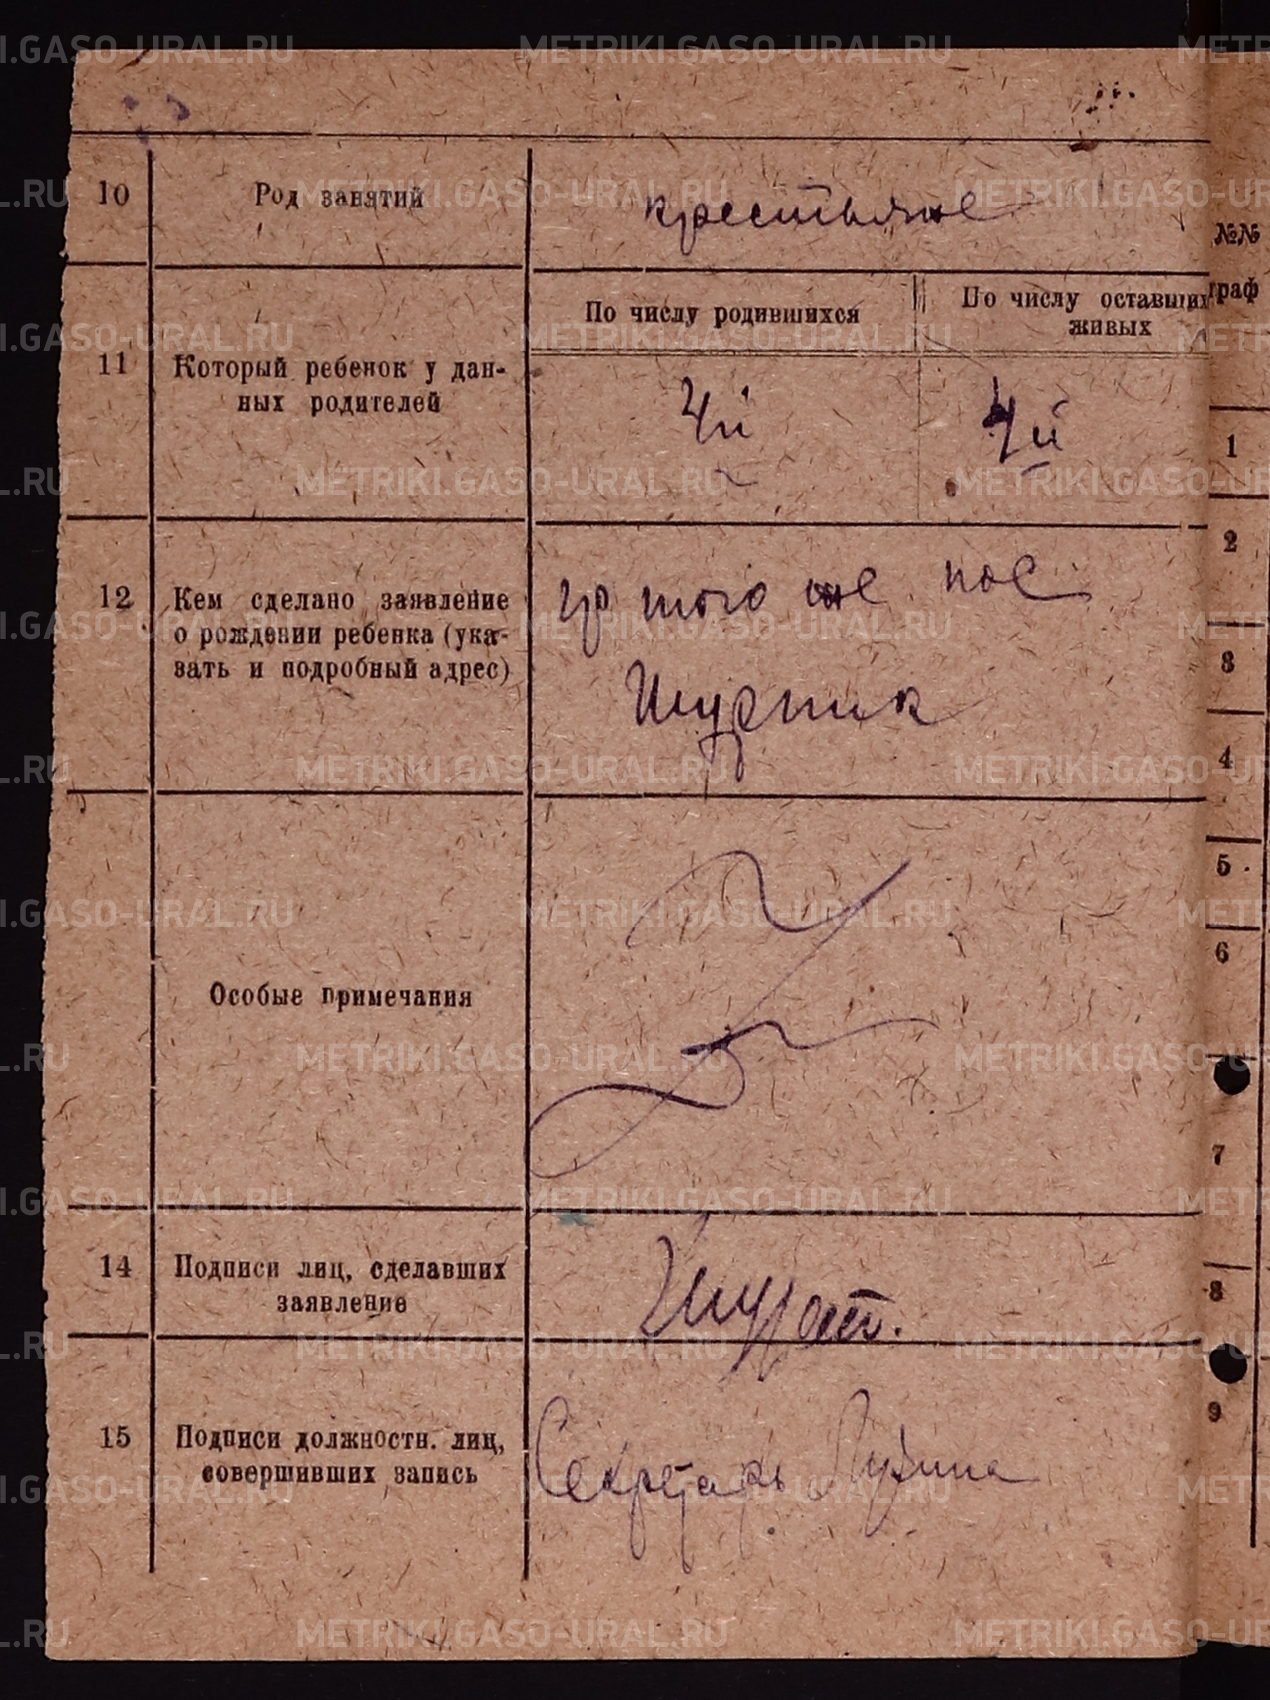 10 Род занятий крестьяне
По числу родившихся По числу оставшихся
живых
11 Который ребенок у дан-
ных родителей
4й 4й
12 Кем сделано заявление
о рождении ребенка (ука-
зать и подробный адрес)
гр того же пос
Особые примечания
14 Подписи лиц, сделавших
заявление
15 Подписи должностн. лиц,
совершивших запись
Секретарь
№№
граф
1
2
3
4
5
6
7
8
9
METRIKI.GASO-URAL.RU